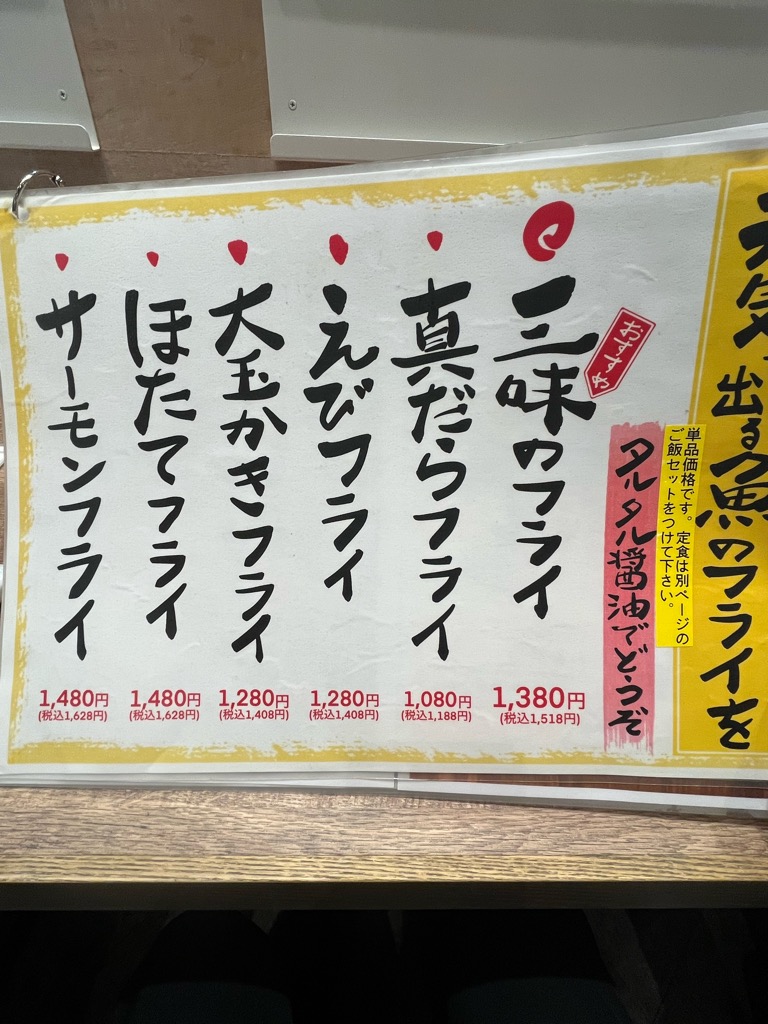 元気の出る魚のフライを
単品価格です。定食は別ページの
ご飯セットをつけて下さい。
タルタル醤油でどうぞ
おすすめ
三味のフライ
1,380円
(税込1,518円)
真だらフライ
1,080円
(税込1,188円)
えびフライ
1,280円
(税込1,408円)
大玉かきフライ
1,280円
(税込1,408円)
ほたてフライ
1,480円
(税込1,628円)
サーモンフライ
1,480円
(税込1,628円)